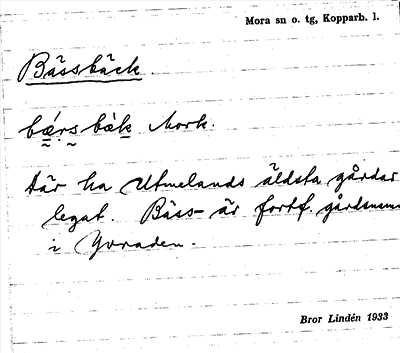 Mora sn o. tg, Kopparb. l.
Bässbäck
bǽrs bæ̀k Mork.
Här ha Utmelands äldsta gårdar
legat. Bäss- är fortf. gårdsnamn
i Yvraden.
Bror Lindén 1933